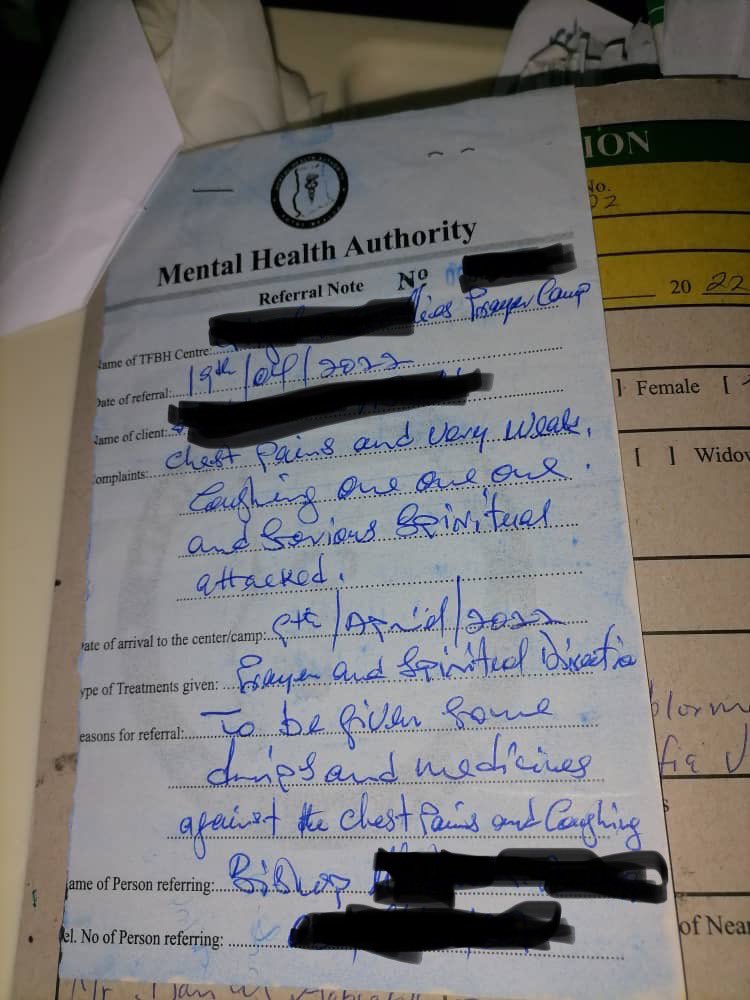 ION
No.
02
20 22
Female [
[ ] Widow
of Near
Mental Health Authority
Referral Note No
ame of TFBH Centre: Prayer Camp
Date of referral: 19th/04/2022
ame of client:
omplaints: Chest Pains and very weak.
Coughing one one one.
and Serious Spiritual
attacked.
ate of arrival to the center/camp: 9th/April/2022
ype of Treatments given: Prayer and Spiritual Directio
easons for referral: To be given some
drips and medicines
against the chest Pains and Coughing
ame of Person referring: Bishop
el. No of Person referring: